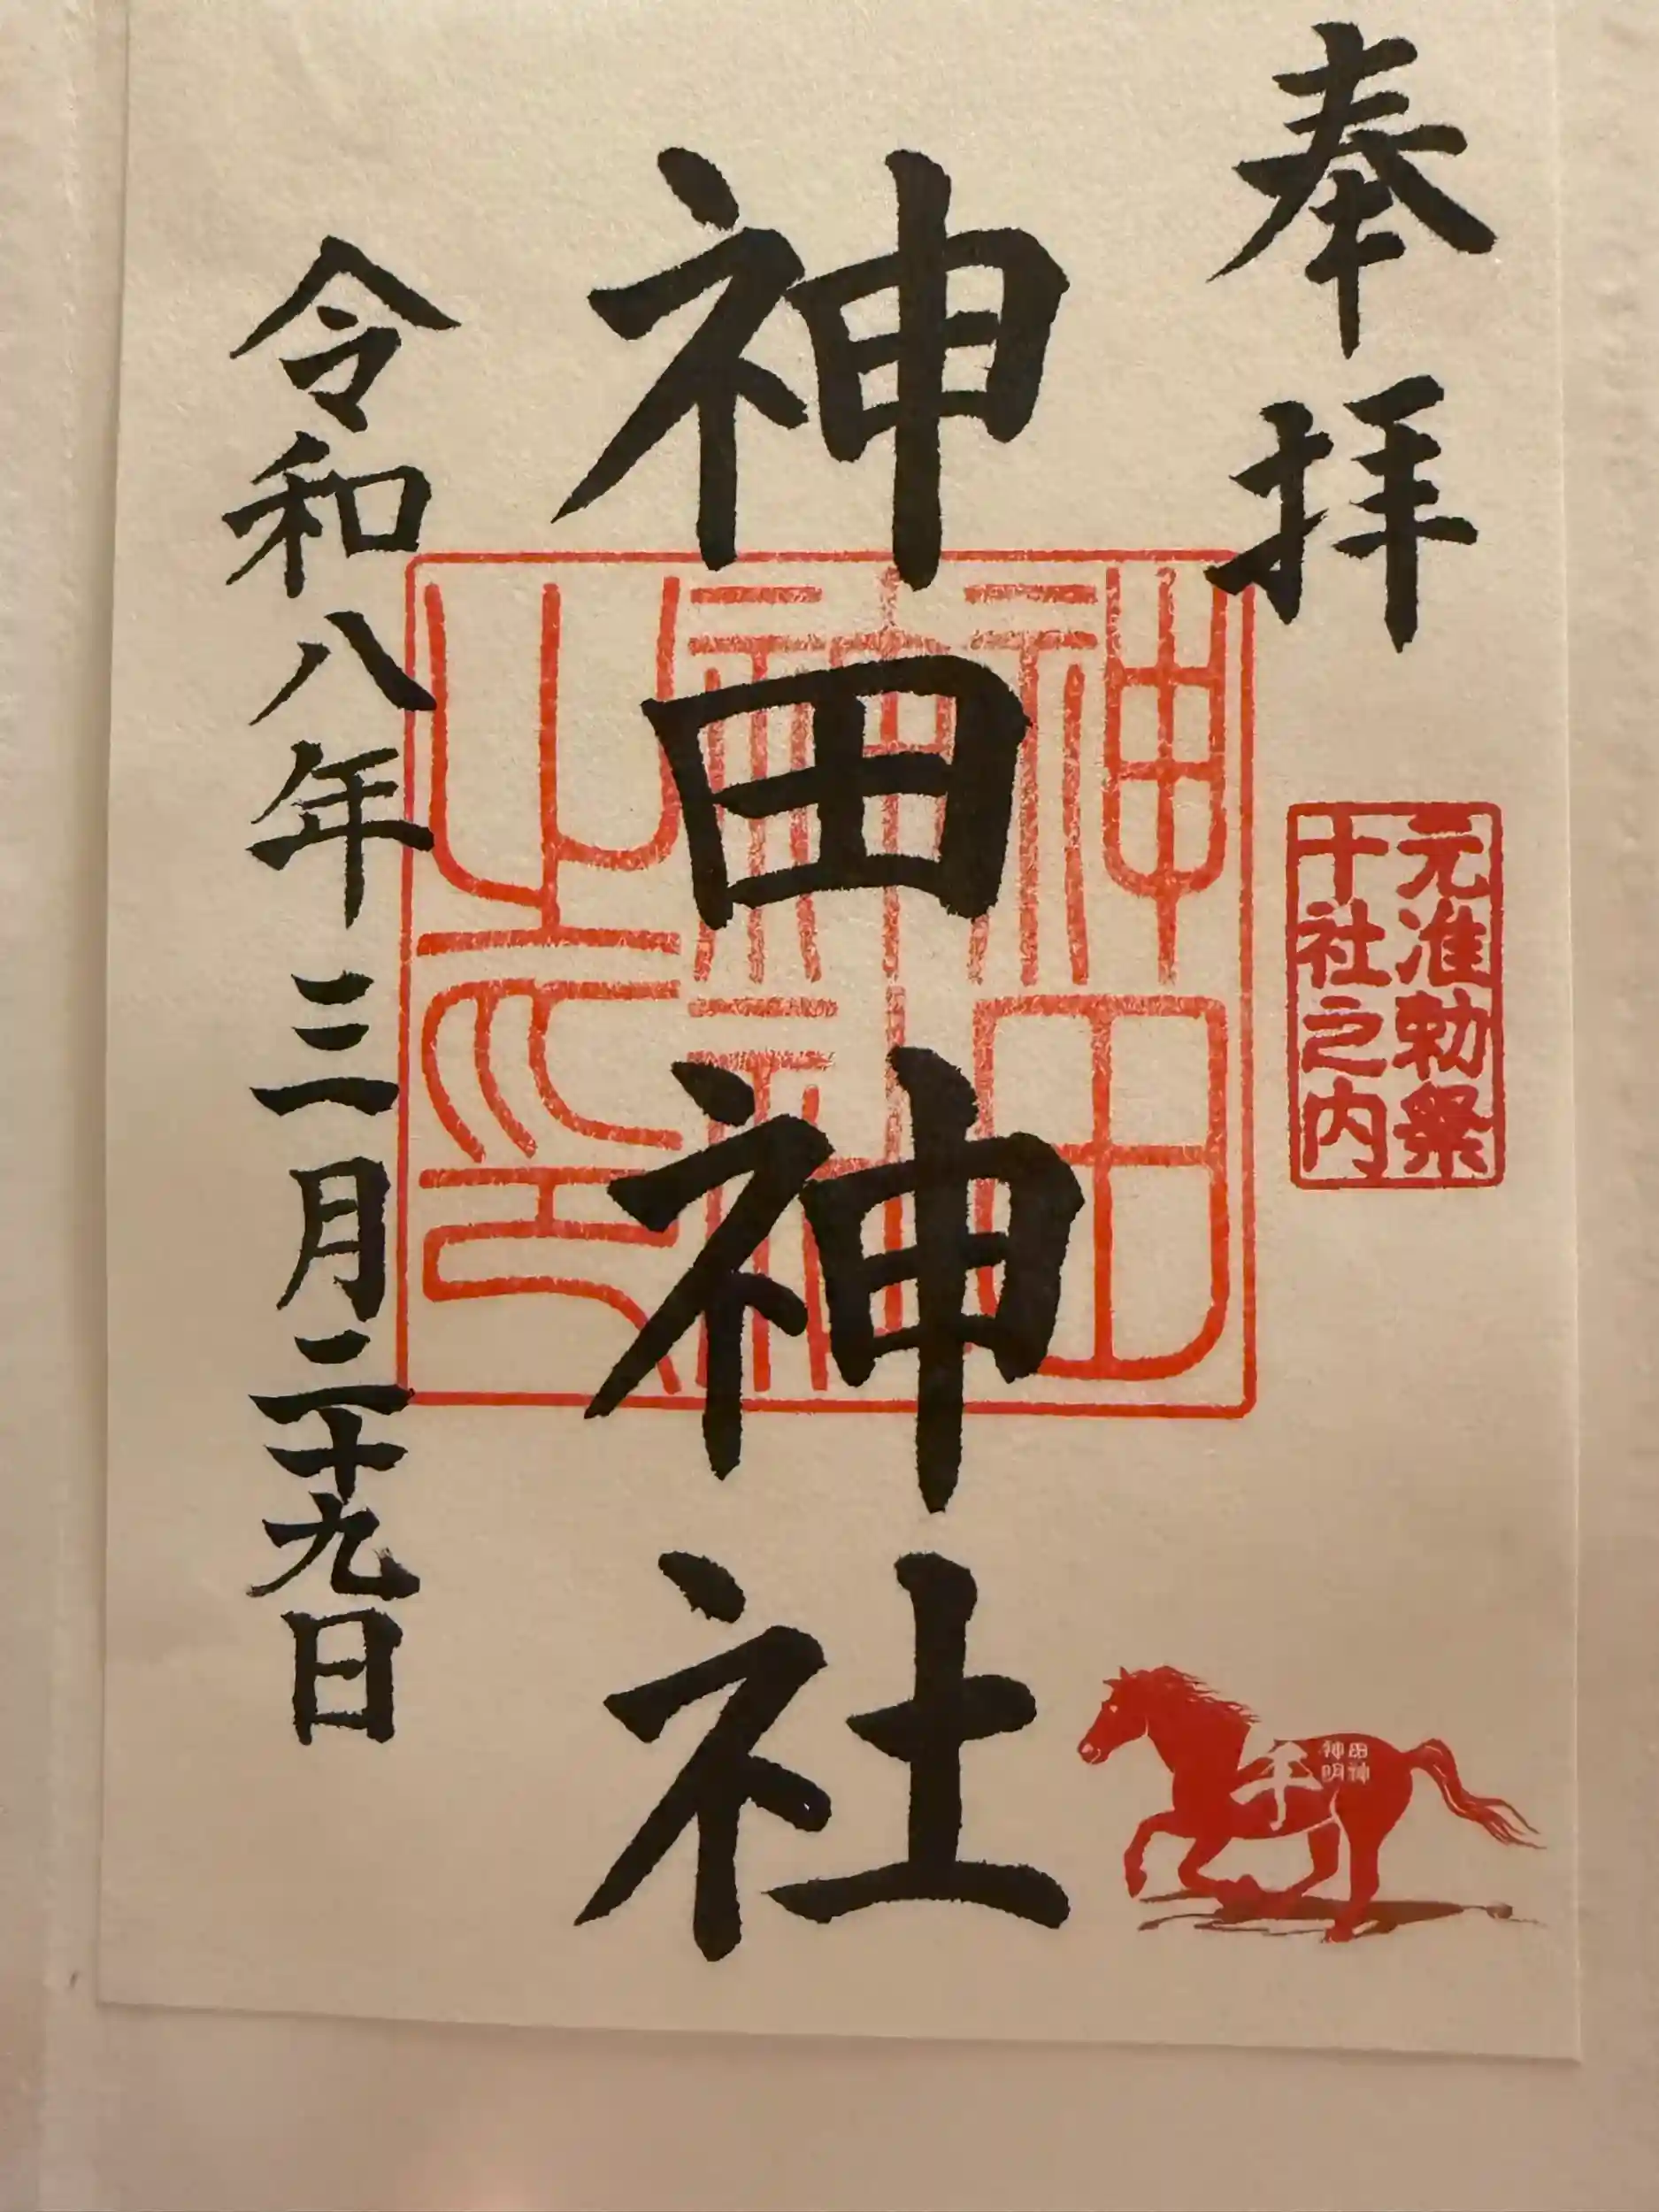 奉拝
元准勅祭
十社之内
神田神社
神田神社之印
令和八年三月二十九日
田神
神明